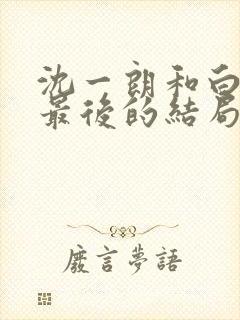 沈一朗和白
最後的結局
廢言夢語